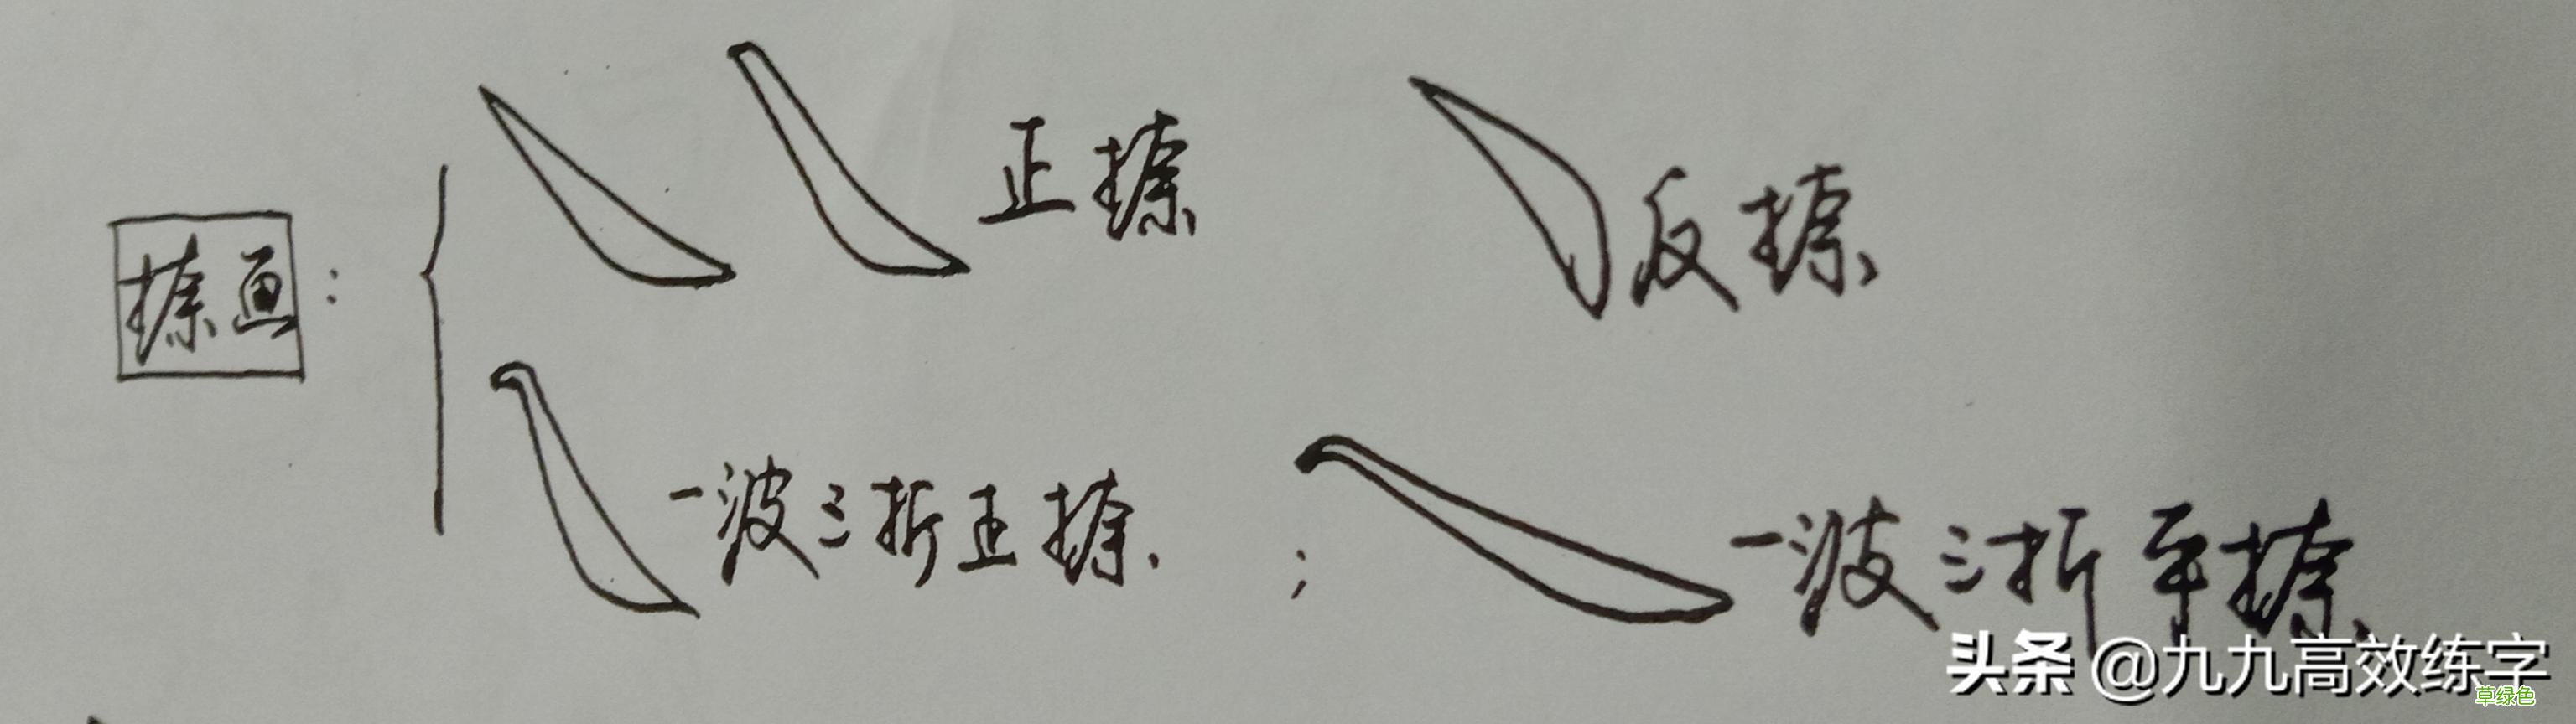 捺画：
正捺 反捺
一波三折正捺；一波三折平捺
头条 @九九高效练字
草绿色